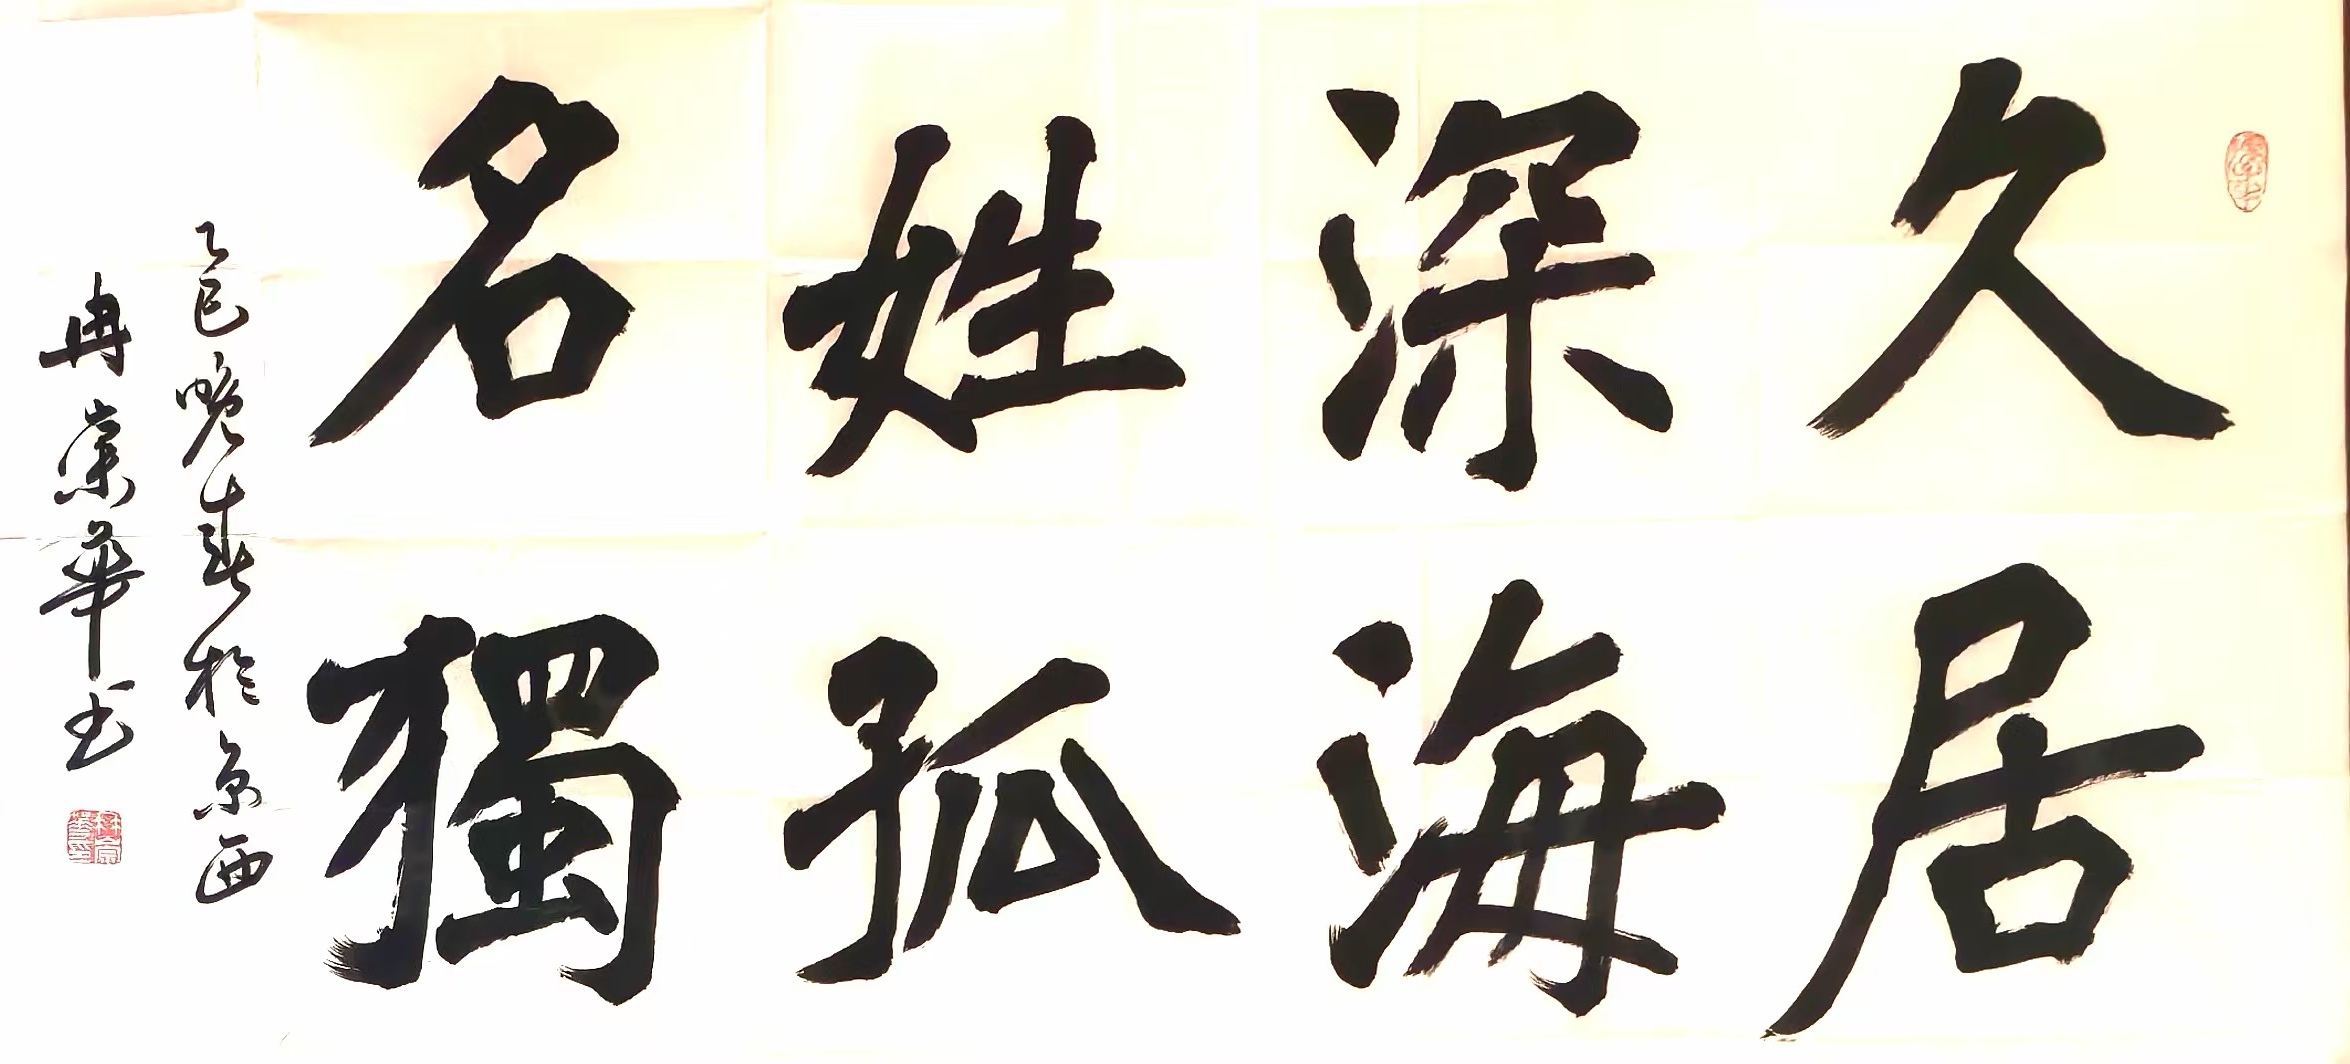 久居
深海
姓孤
名獨
乙巳晚春於京西
冉崇華书